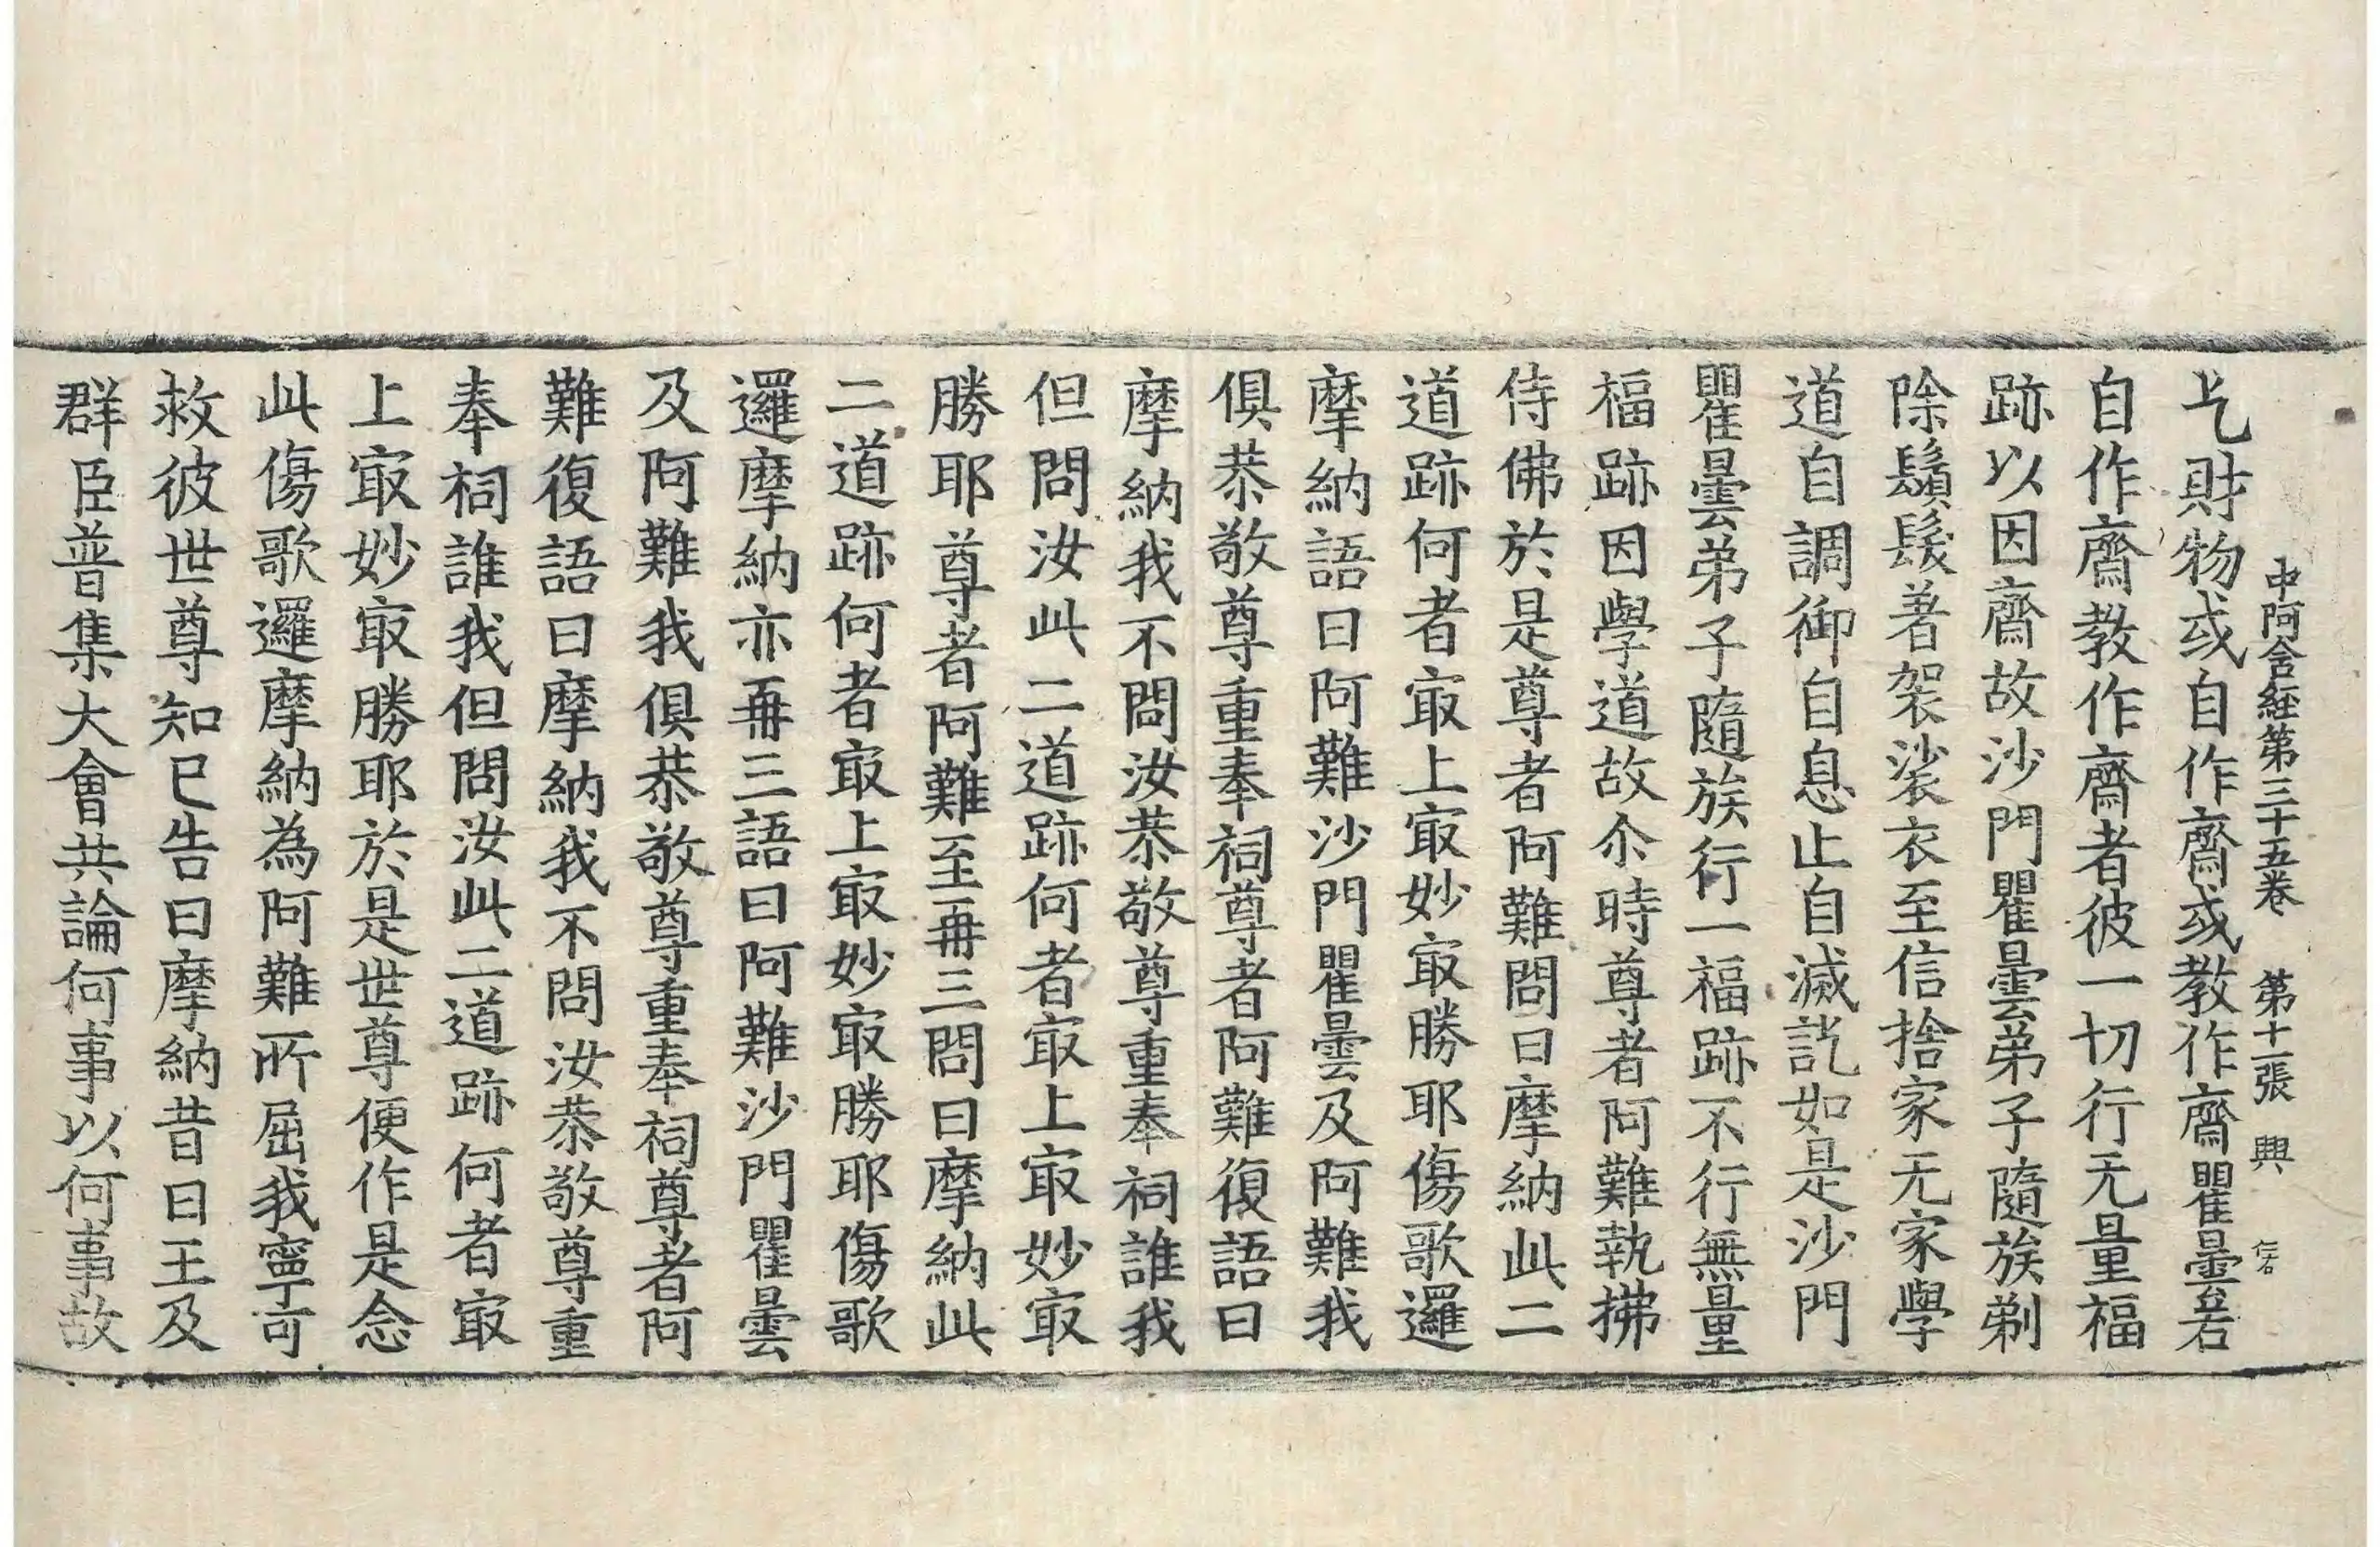 中阿含経第三十五巻 第十一張 興
乞財物或自作齋或教作齋瞿曇若
自作齋教作齋者彼一切行无量福
跡以因齋故沙門瞿曇弟子隨族剃
除鬚髮著袈裟衣至信捨家无家學
道自調御自息止自滅訖如是沙門
瞿曇弟子隨族行一福跡不行無量
福跡因學道故尒時尊者阿難執拂
侍佛於是尊者阿難問曰摩納此二
道跡何者㝡上㝡妙㝡勝耶傷歌邏
摩納語曰阿難沙門瞿曇及阿難我
俱恭敬尊重奉祠尊者阿難復語曰
摩納我不問汝恭敬尊重奉祠誰我
但問汝此二道跡何者㝡上㝡妙㝡
勝耶尊者阿難至再三問曰摩納此
二道跡何者㝡上㝡妙㝡勝耶傷歌
邏摩納亦再三語曰阿難沙門瞿曇
及阿難我俱恭敬尊重奉祠尊者阿
難復語曰摩納我不問汝恭敬尊重
奉祠誰我但問汝此二道跡何者㝡
上㝡妙㝡勝耶於是世尊便作是念
此傷歌邏摩納為阿難所屈我寧可
救彼世尊知已告曰摩納昔日王及
群臣普集大會共論何事以何事故